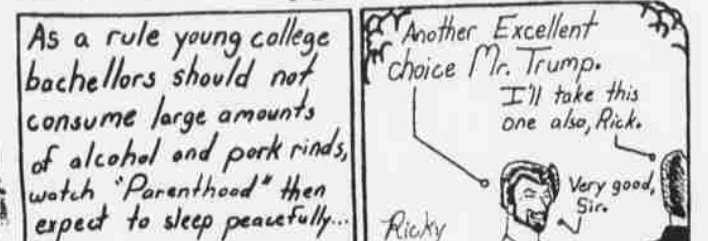 As a rule young college
bachellors should not
consume large amounts
of alcohol and pork rinds,
watch "Parenthood" then
expect to sleep peacefully...
Another Excellent
choice Mr. Trump.
I'll take this
one also, Rick.
Very good,
Sir.
Ricky